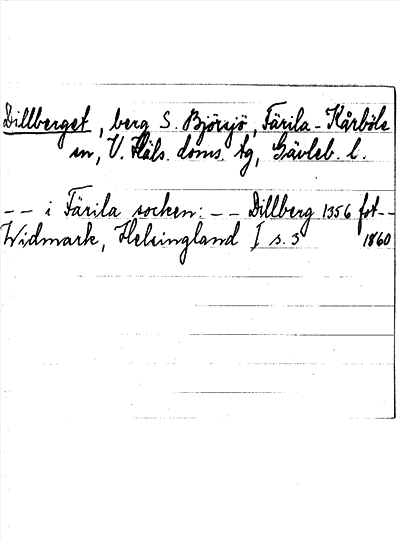 Dillberget, berg S. Björsjö, Färila-Kårböle
sn, V. Häls. doms. tg, Gävleb. l.
-- i Färila socken: -- Dillberg 1356 fot--
Widmark, Helsingland I s. 5 1860